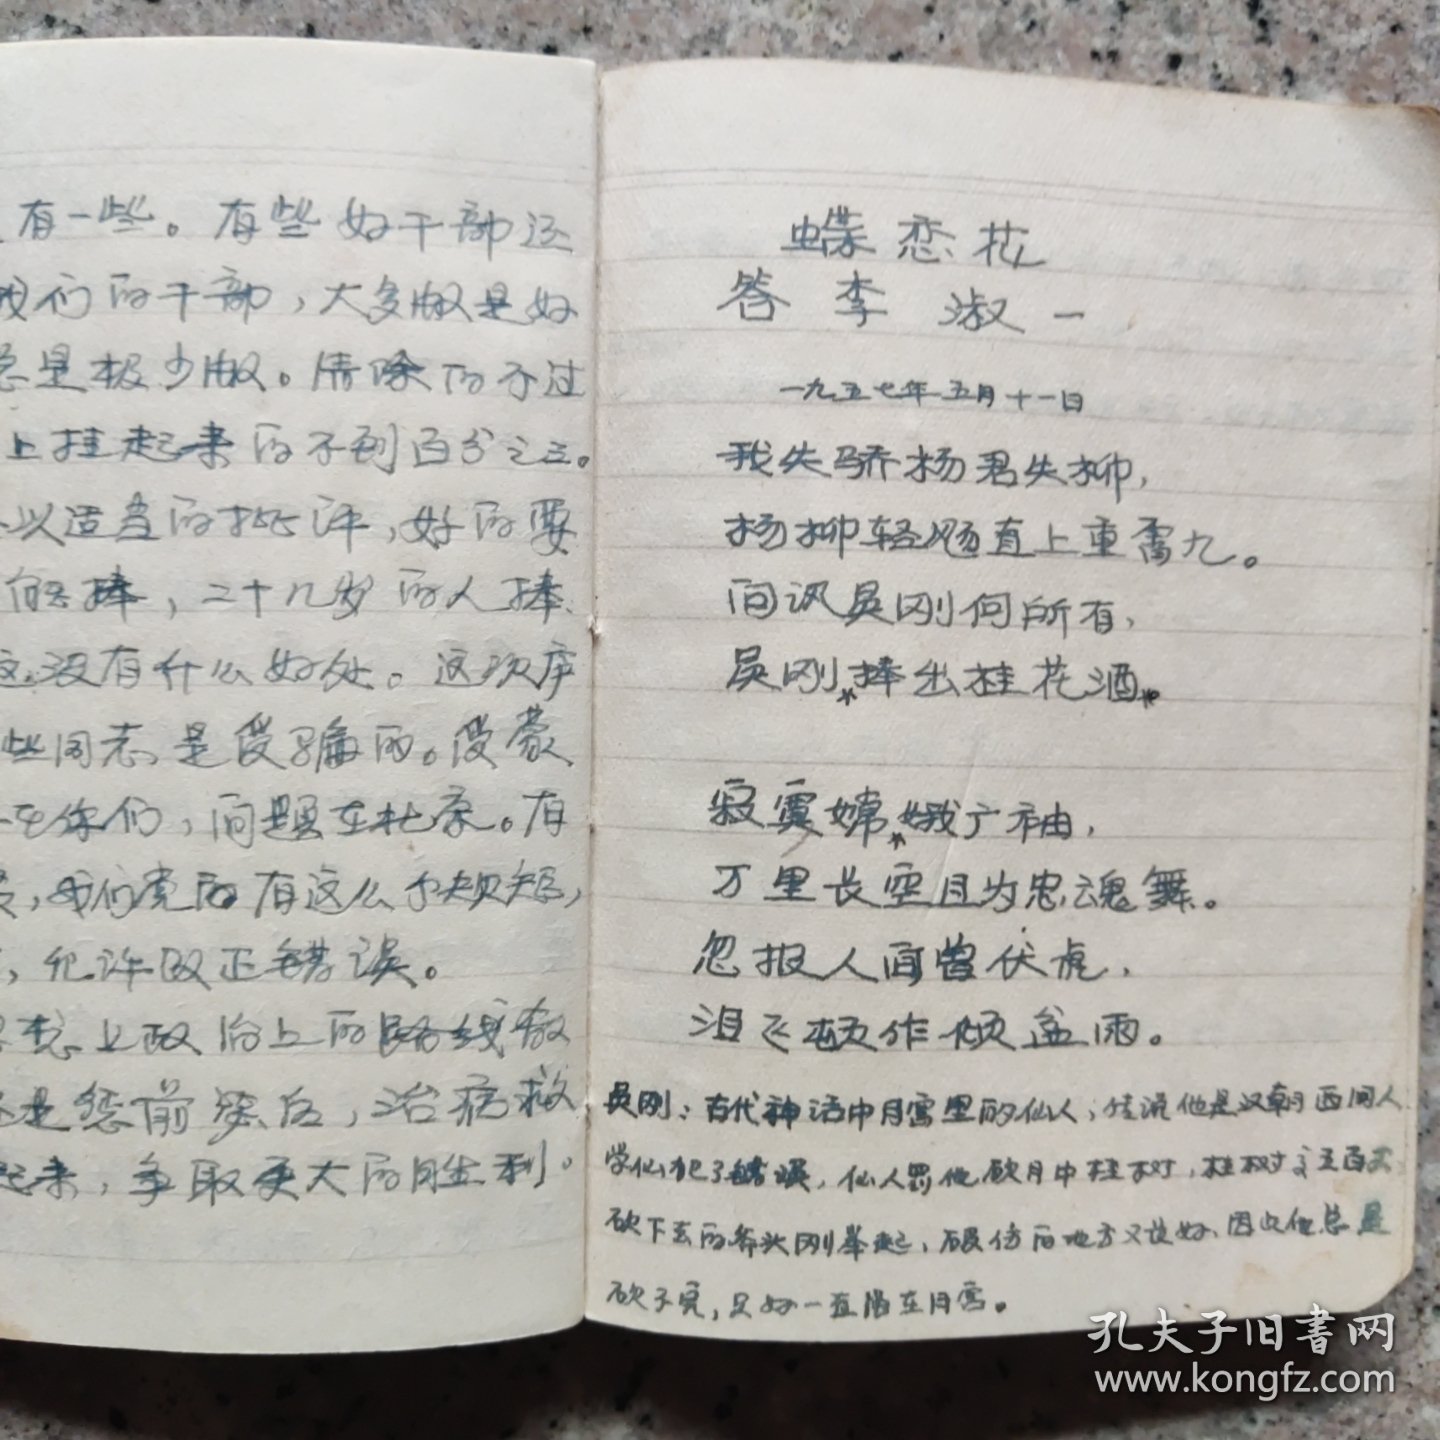 有一些。有些好干部还
我们的干部，大多数是好
总是极少数。清除的不过
上挂起来的不到百分之三。
以适当的批评，好的要
能捧，二十几岁的人捧
这没有什么好处。这次庐
些同志是受骗的。受蒙
在你们，问题在北京。有
，我们党的有这么个规矩，
，允许改正错误。
思想上政治上的路线教
还是惩前毖后，治病救
起来，争取更大的胜利。
蝶恋花
答李淑一
一九五七年五月十一日
我失骄杨君失柳，
杨柳轻飏直上重霄九。
问讯吴刚何所有，
吴刚捧出桂花酒。
寂寞嫦娥广袖，
万里长空且为忠魂舞。
忽报人间曾伏虎，
泪飞顿作倾盆雨。
吴刚：古代神话中月宫里的仙人，传说他是汉朝西河人
学仙犯了错误，仙人罚他砍月中桂树，桂树高五百丈
砍下去的斧头刚举起，砍伤的地方又长好，因此他总是
砍不完，只好一直留在月宫。
孔夫子旧书网
www.kongfz.com